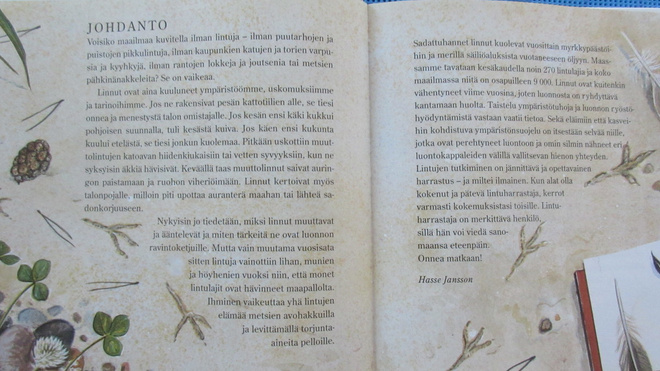 JOHDANTO
Voisiko maailmaa kuvitella ilman lintuja – ilman puutarhojen ja
puistojen pikkulintuja, ilman kaupunkien katujen ja torien varpu-
sia ja kyyhkyjä, ilman rantojen lokkeja ja joutsenia tai metsien
pähkinänakkeleita? Se on vaikeaa.
Linnut ovat aina kuuluneet ympäristöömme, uskomuksiimme
ja tarinoihimme. Jos ne rakensivat pesän kattotiilien alle, se tiesi
onnea ja menestystä talon omistajalle. Jos kesän ensi käki kukkui
pohjoisen suunnalla, tuli kesästä kuiva. Jos käen ensi kukunta
kuului etelästä, se tiesi jonkun kuolemaa. Pitkään uskottiin muut-
tolintujen katoavan hiidenkiukaisiin tai vetten syvyyksiin, kun ne
syksyisin äkkiä hävisivät. Keväällä taas muuttolinnut saivat aurin-
gon paistamaan ja ruohon viheriöimään. Linnut kertoivat myös
talonpojalle, milloin piti upottaa auranterä maahan tai lähteä sa-
donkorjuuseen.
Nykyisin jo tiedetään, miksi linnut muuttavat
ja ääntelevät ja miten tärkeitä ne ovat luonnon
ravintoketjuille. Mutta vain muutama vuosisata
sitten lintuja vainottiin lihan, munien
ja höyhenien vuoksi niin, että monet
lintulajit ovat hävinneet maapallolta.
Ihminen vaikeuttaa yhä lintujen
elämää metsien avohakkuilla
ja levittämällä torjunta-
aineita pelloille.
Sadattuhannet linnut kuolevat vuosittain myrkkypäästöi-
hin ja merillä säiliöaluksista vuotaneeseen öljyyn. Maas-
samme tavataan kesäkaudella noin 270 lintulajia ja koko
maailmassa niitä on osapuilleen 9 000. Linnut ovat kuitenkin
vähentyneet viime vuosina, joten luonnosta on ryhdyttävä
kantamaan huolta. Taistelu ympäristötuhoja ja luonnon ryöstö-
hyödyntämistä vastaan vaatii tietoa. Sekä eläimiin että kasvei-
hin kohdistuva ympäristönsuojelu on itsestään selvää niille,
jotka ovat perehtyneet luontoon ja omin silmin nähneet eri
luontokappaleiden välillä vallitsevan hienon yhteyden.
Lintujen tutkiminen on jännittävä ja opettavainen
harrastus – ja miltei ilmainen. Kun alat olla
kokenut ja pätevä lintuharrastaja, kerrot
varmasti kokemuksistasi toisille. Lintu-
harrastaja on merkittävä henkilö,
sillä hän voi viedä sano-
maansa eteenpäin.
Onnea matkaan!
Hasse Jansson